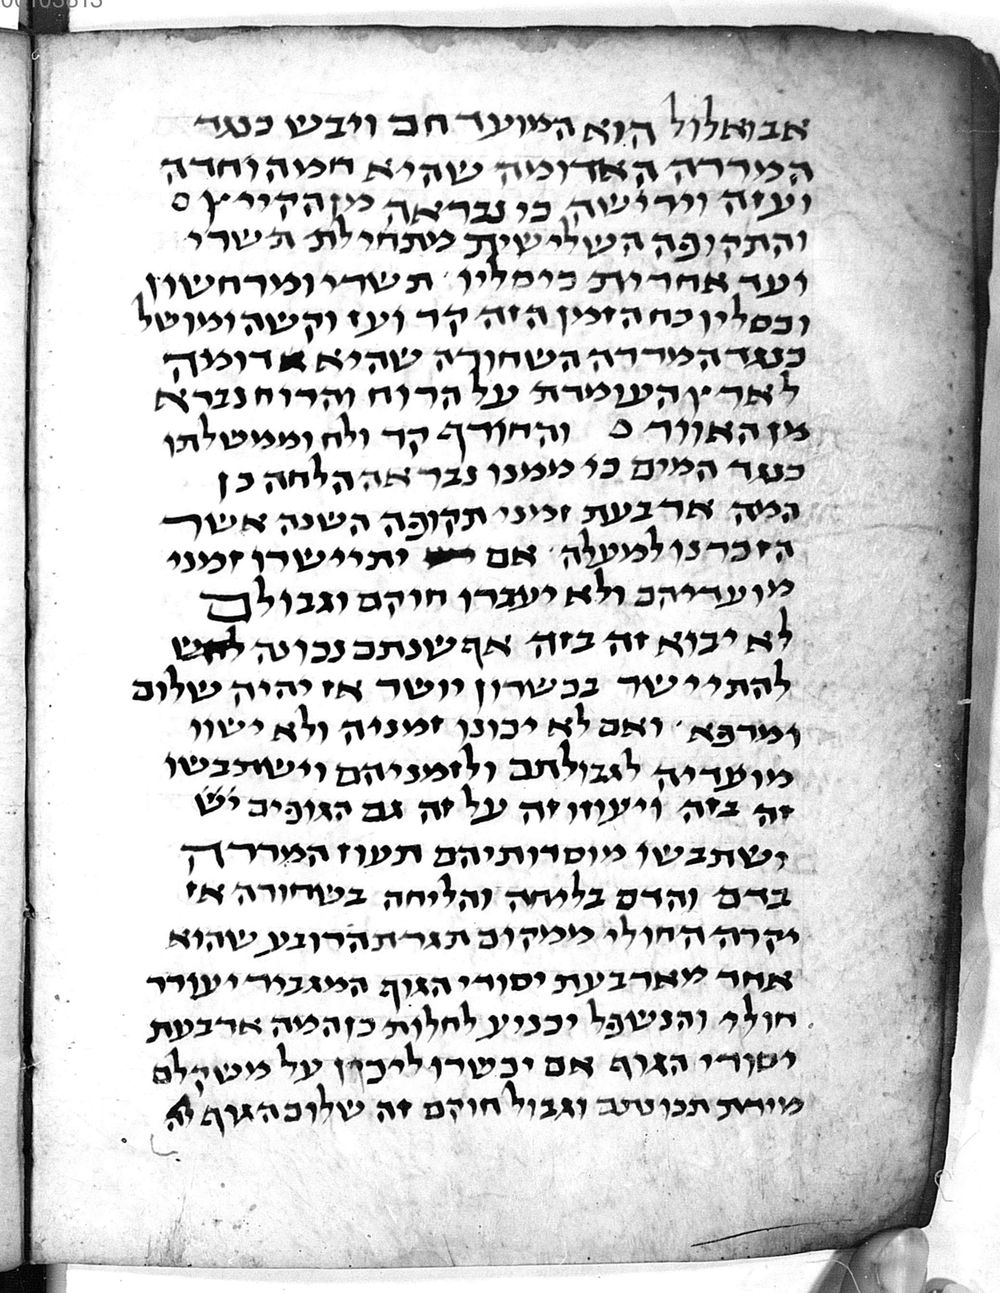 אבואלול הוא המועד חם ויבש כנגד
המררה האדומה שהיא חמה וחדה
ועזה וירישה כי נבראה מן הקייץ ס
והתקופה השלישית מתחילת תשרי
ועד אחרית כיסליו תשרי ומרחשוון
וכסליו כח הזמן הזה קר ועז וקשה ומוטל
כנגד המררה השחורה שהיא דומה
לארץ העומדת על הרוח והרוח נברא
מן האוויר ס והחורף קר ולח וממשלתו
כנגד המים כי ממנו נבראה הלחה כן
המה ארבעת זמני תקופה השנה אשר
הזכרנו למעלה אם יתיישרו זמני
מועדיהם ולא יעברו חוקם וגבולם
לא יבוא זה בזה אף שנתם נכונה
להתיישר בכשרון יושר אז יהיה שלום
ומרפא ואם לא יכונו זמניה ולא ישוו
מועדיה לגבולתם ולזמניהם וישתבשו
זה בזה ויעוזו זה על זה גם הגופים יש
ישתבשו מוסדותיהם תעוז המררה
בדם והדם בליחה והליחה בשחורה אז
יקרה החולי ממקום תגרת הרובע שהוא
אחד מארבעת יסורי הגוף המגביר יעורר
חולי והנשפל יכניע לחלות כן המה ארבעת
יסורי הגוף אם יכשרו ליכון על משקלם
מידת תכונתם וגבול חוקם זה שלום הגוף